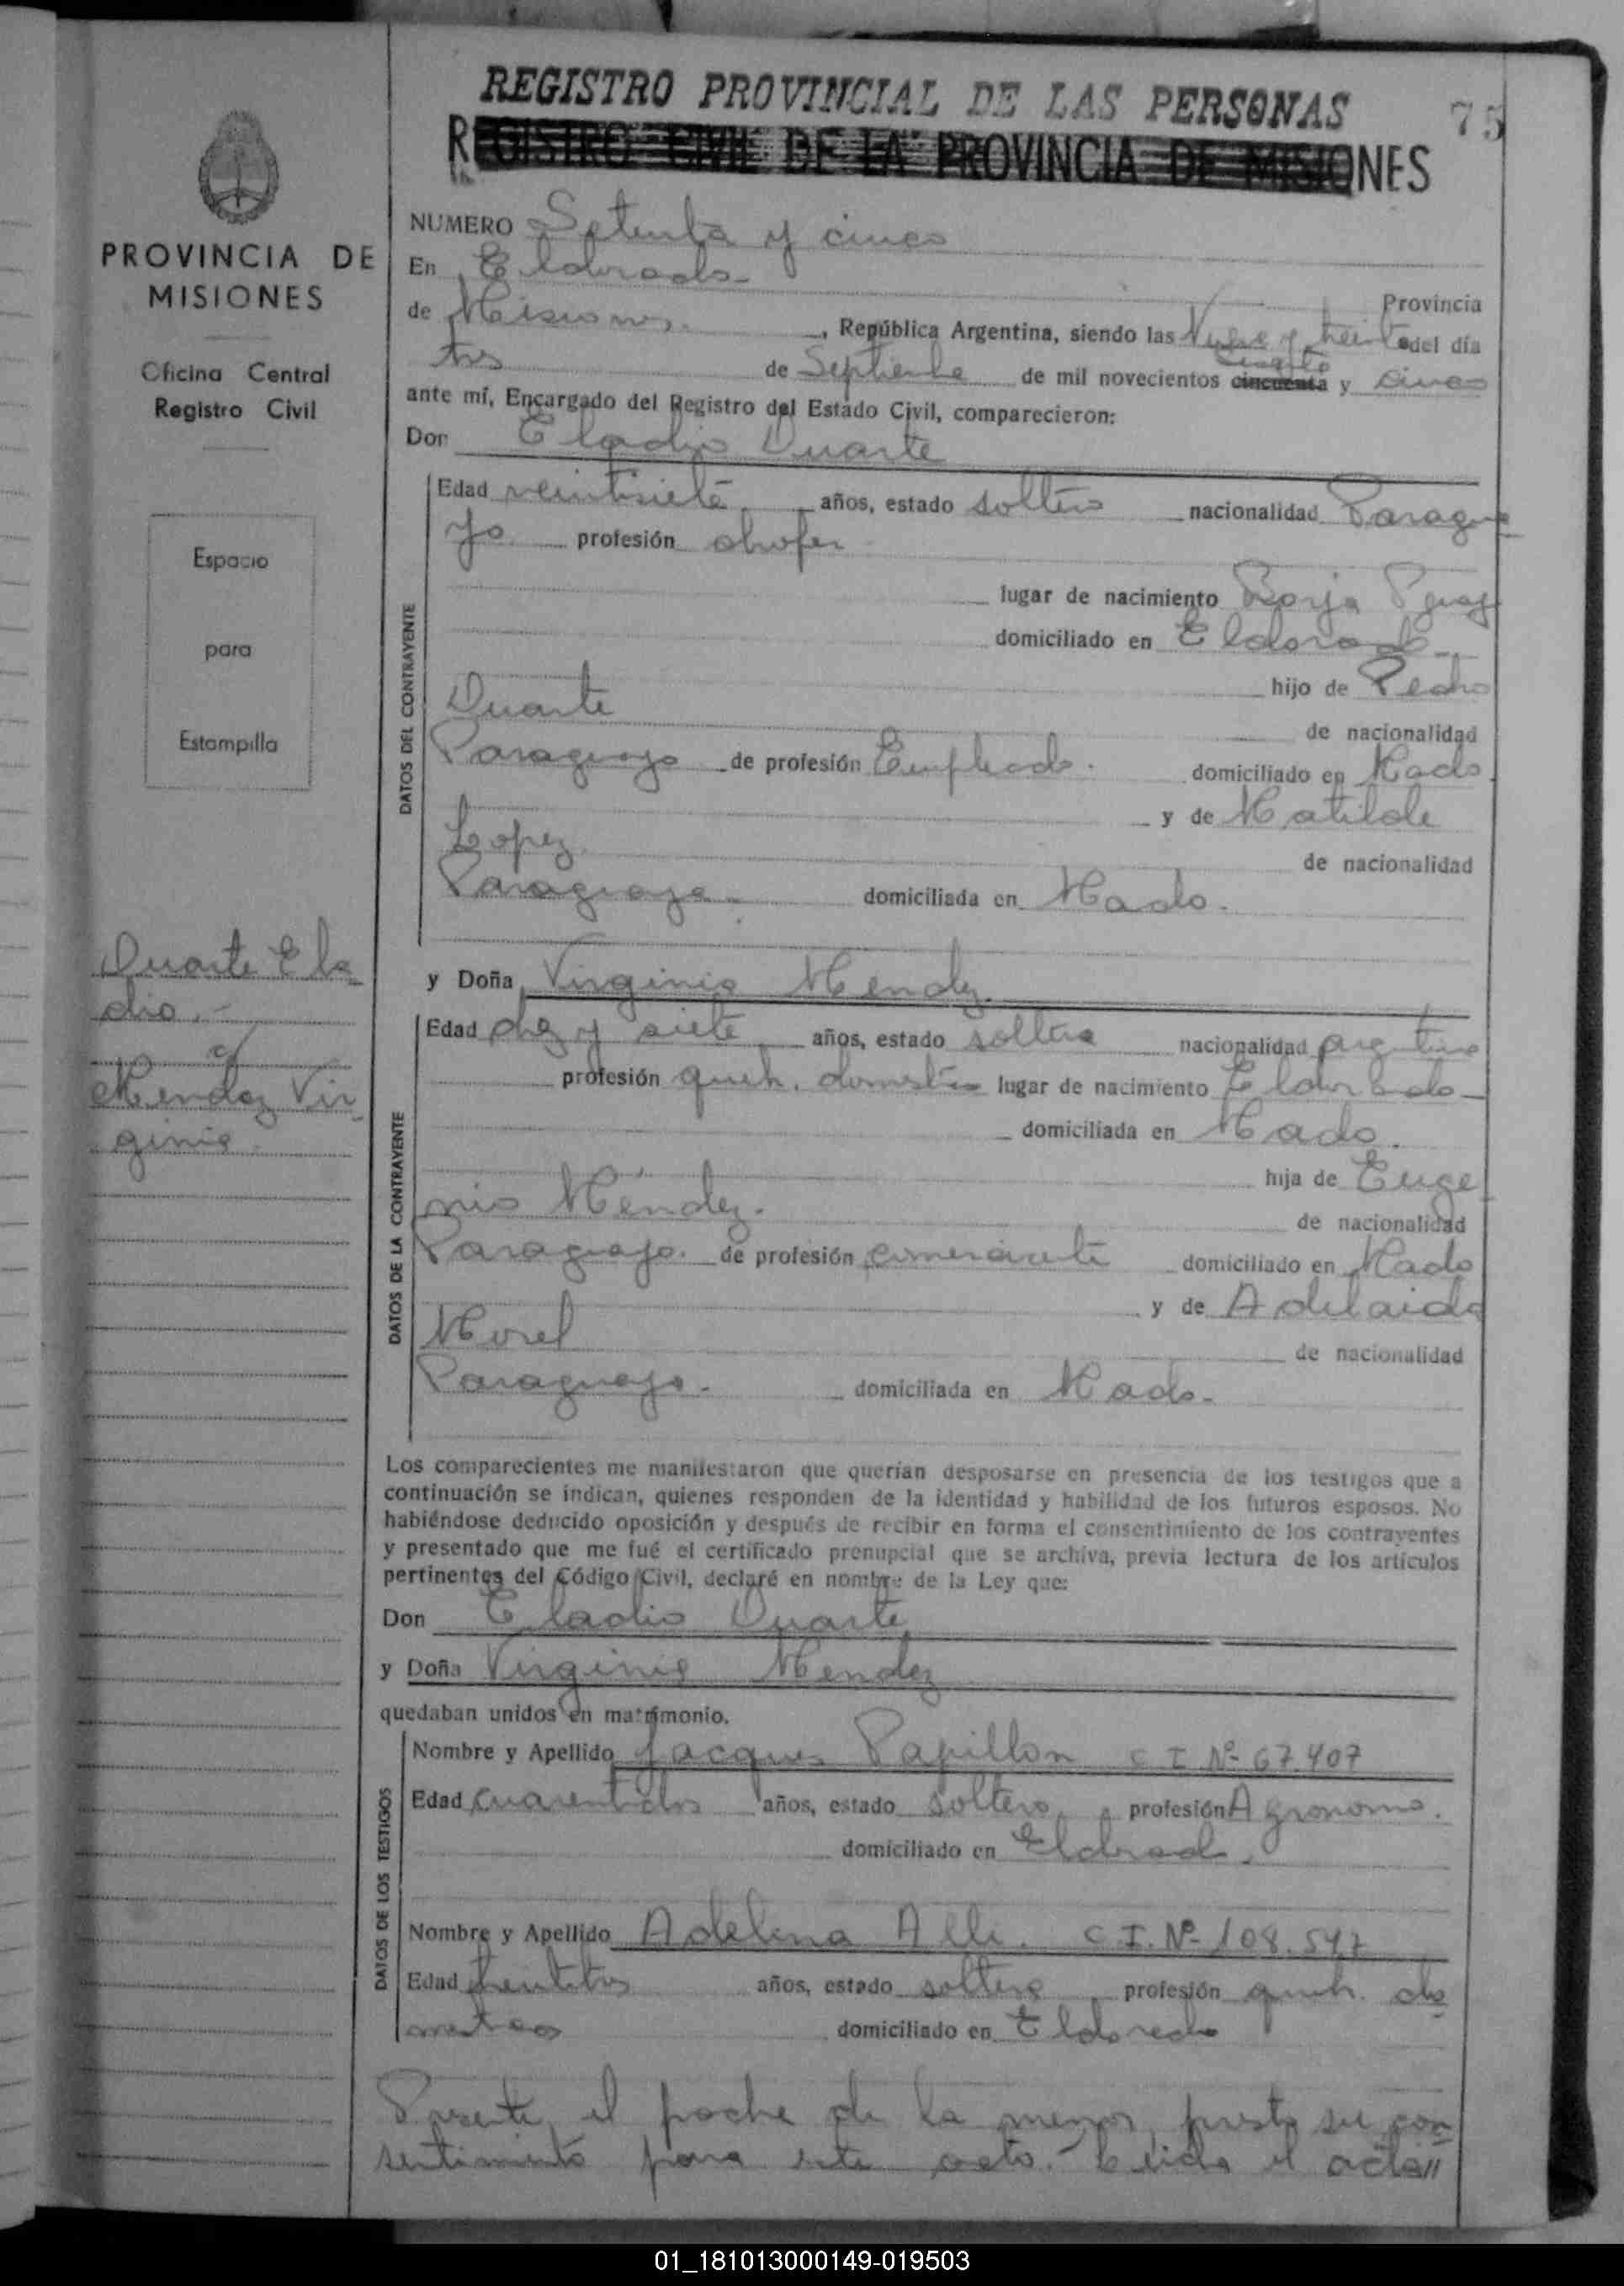 REGISTRO PROVINCIAL DE LAS PERSONAS
75
REGISTRO CIVIL DE LA PROVINCIA DE MISIONES
PROVINCIA DE
MISIONES
Oficina Central
Registro Civil
Espacio
para
Estampilla
Duarte Ela
dio.-
c/
Mendez Vir
ginia.
NUMERO Setenta y cinco
En Eldorado-
Provincia
de Misiones. , República Argentina, siendo las Nueve y treinta del día
tres de Septiembre de mil novecientos cincuenta y cinco
ante mí, Encargado del Registro del Estado Civil, comparecieron:
Don Eladio Duarte
DATOS DEL CONTRAYENTE
Edad veintisiete años, estado soltero nacionalidad Paragua
yo profesión chofer
lugar de nacimiento Borja Parag
domiciliado en Eldorado-
hijo de Pedro
Duarte
de nacionalidad
Paraguayo de profesión Empleado. domiciliado en Mado
y de Matilde
Lopez
de nacionalidad
Paraguaya- domiciliada en Mado.
y Doña Virginia Mendez
DATOS DE LA CONTRAYENTE
Edad diez y siete años, estado soltera nacionalidad argentina
profesión queh. domestico lugar de nacimiento Eldorado-
domiciliada en Mado.
hija de Euge
nio Méndez.
de nacionalidad
Paraguayo. de profesión comerciante domiciliado en Mado
y de Adelaida
Morel
de nacionalidad
Paraguaya. domiciliada en Mado-
Los comparecientes me manifestaron que querían desposarse en presencia de los testigos que a
continuación se indican, quienes responden de la identidad y habilidad de los futuros esposos. No
habiéndose deducido oposición y después de recibir en forma el consentimiento de los contrayentes
y presentado que me fué el certificado prenupcial que se archiva, previa lectura de los artículos
pertinentes del Código Civil, declaré en nombre de la Ley que:
Don Eladio Duarte
y Doña Virginia Mendez
quedaban unidos en matrimonio.
DATOS DE LOS TESTIGOS
Nombre y Apellido Jacques Papillon C I Nº 67.407
Edad cuarentidos años, estado soltero, profesión Agronomo.
domiciliado en Eldorado.
Nombre y Apellido Adelina Alli. C.I. Nº 108.547
Edad treintitres años, estado soltera profesión queh. do
mesticos domiciliado en Eldorado
Presente el padre de la menor presta su con
sentimiento para este acto.- Leida el acta//
01_181013000149-019503